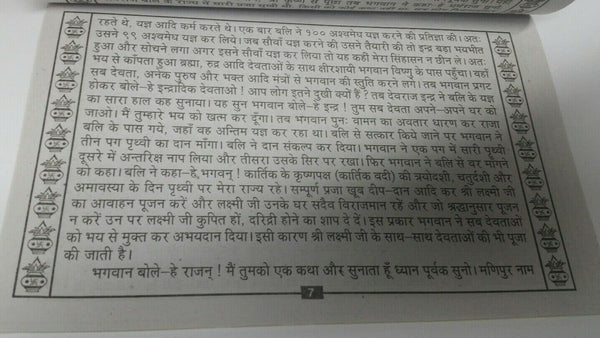 रहते थे, यज्ञ आदि कर्म करते थे। एक बार बलि ने १०० अश्वमेध यज्ञ करने की प्रतिज्ञा की। अतः
उसने ९९ अश्वमेध यज्ञ कर लिये। जब सौवाँ यज्ञ करने की उसने तैयारी की तो इन्द्र बड़ा भयभीत
हुआ और सोचने लगा अगर इसने सौवाँ यज्ञ कर लिया तो यह कहीं मेरा सिंहासन न छीन ले। अतः
भय से काँपता हुआ ब्रह्मा, रुद्र आदि देवताओं के साथ क्षीरशायी भगवान विष्णु के पास पहुँचा। वहाँ
सब देवता, अनेक पुरुष और भक्त आदि मंत्रों से भगवान की स्तुति करने लगे। तब भगवान प्रगट
होकर बोले-हे इन्द्रादिक देवताओ ! आप लोग इतने दुखी क्यों हैं ? तब देवराज इन्द्र ने बलि के यज्ञ
का सारा हाल कह सुनाया। यह सुन भगवान बोले-हे इन्द्र ! तुम सब देवता अपने-अपने घर को
जाओ। मैं तुम्हारे भय को खत्म कर दूँगा। तब भगवान पुनः वामन का अवतार धारण कर राजा
बलि के पास गये, जहाँ वह अन्तिम यज्ञ कर रहा था। बलि से सत्कार किये जाने पर भगवान ने
तीन पग पृथ्वी का दान माँगा। बलि ने दान संकल्प कर दिया। भगवान ने एक पग में सारी पृथ्वी
दूसरे में अन्तरिक्ष नाप लिया और तीसरा उसके सिर पर रखा। फिर भगवान ने बलि से वर माँगने
को कहा। बलि ने कहा-हे,भगवन् ! कार्तिक के कृष्णपक्ष (कार्तिक वदी) की त्रयोदशी, चतुर्दशी और
अमावस्या के दिन पृथ्वी पर मेरा राज्य रहे। सम्पूर्ण प्रजा खूब दीप-दान आदि कर श्री लक्ष्मी जी
का आवाहन पूजन करें और लक्ष्मी जी उनके घर सदैव विराजमान रहें और जो श्रद्धानुसार पूजन
न करें उन पर लक्ष्मी जी कुपित हों, दरिद्री होने का शाप दे दें। इस प्रकार भगवान ने सब देवताओं
को भय से मुक्त कर अभयदान दिया। इसी कारण श्री लक्ष्मी जी के साथ-साथ देवताओं की भी पूजा
की जाती है।
भगवान बोले-हे राजन् ! मैं तुमको एक कथा और सुनाता हूँ ध्यान पूर्वक सुनो। मणिपुर नाम
7